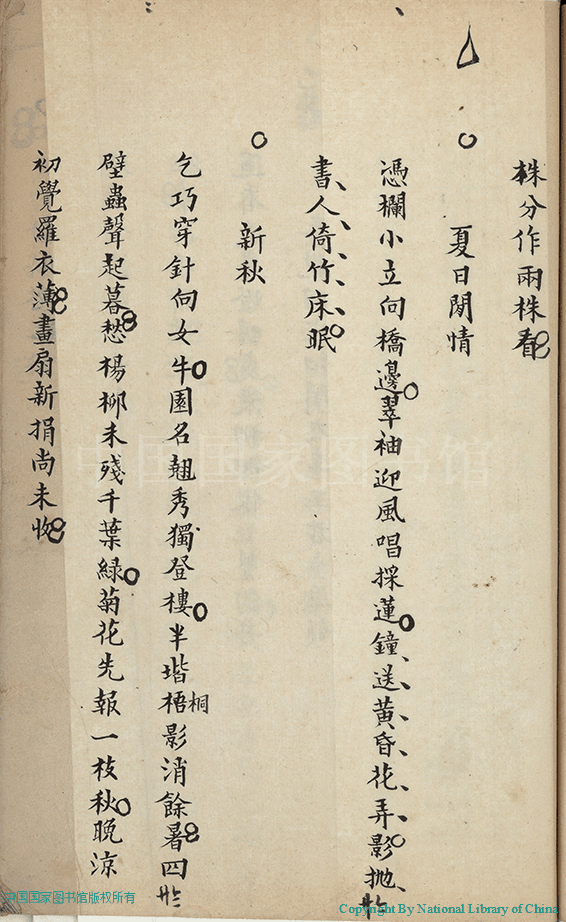 株分作兩株看
夏日閒情
憑欄小立向橋邊翠袖迎風唱採蓮鐘送黃昏花弄影抛
書人倚竹床眠
新秋
乞巧穿針向女牛園名翹秀獨登樓半堦梧桐影消餘暑四
壁蟲聲起暮愁楊柳未殘千葉綠菊花先報一枝秋晚涼
初覺羅衣薄畫扇新捐尚未收
中国国家图书馆
中国国家图书馆版权所有
Copyright By National Library of China